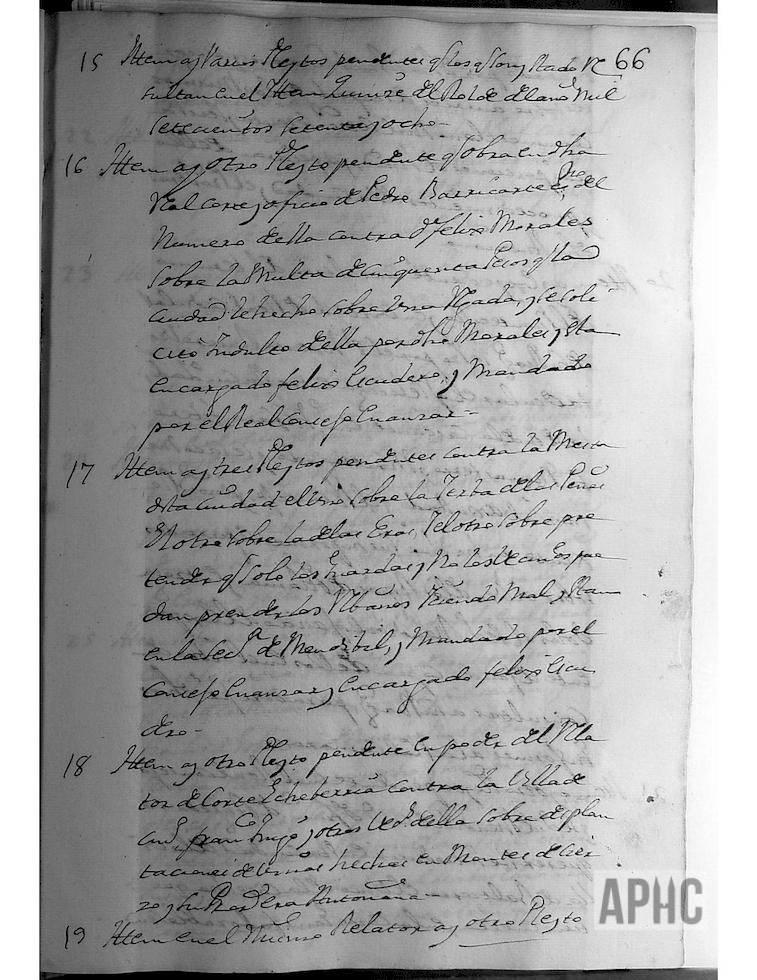 66
15 Ittem ay varios Pleytos pendentes q los q son, y stado Re
sultan en el Ittem quince del Rolde del año Mil
Setecientos Setenta y ocho
16 Ittem ay otro Pleyto pendente q obra en dha
Real Corte, y oficio de Pedro Barricarte Ssno del
Numero della contra Dn felix Morales
sobre la Multa de cinquenta pesos q la
ciudad le hecho sobre una Vegada, y se soli
citó Indulto della por dho Morales, y sta
encargado felix Escudero, y Mandado
por el Real Consejo Cuanzar
17 Ittem ay tres Pleytos pendentes contra la Mesta
desta ciudad el uno sobre la Yerba de las Penas
El otro sobre la de las Eras, Y el otro sobre pre
tender q solo los Guardas, y no los Vecinos pue
dan prender los Rebaños haciendo Mal, y stan
en la Secª de Mendibil, y Mandado por el
Consejo Cuanzar y encargado felix Escu
dero
18 Ittem ay otro Pleyto pendente en poder del Rela
tor de Corte Echeberria contra la Villa de
franco y otros Vecs della sobre desplan
taciones de hechas en Montes de Cier
zo y su Procdor era Antoñana
19 Ittem en el Mismo Relator ay otro Pleyto
APHC